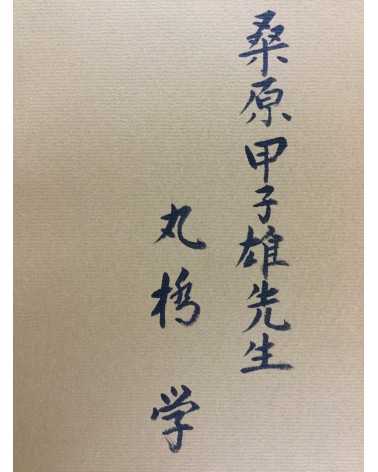 桑原甲子雄先生
丸橋学